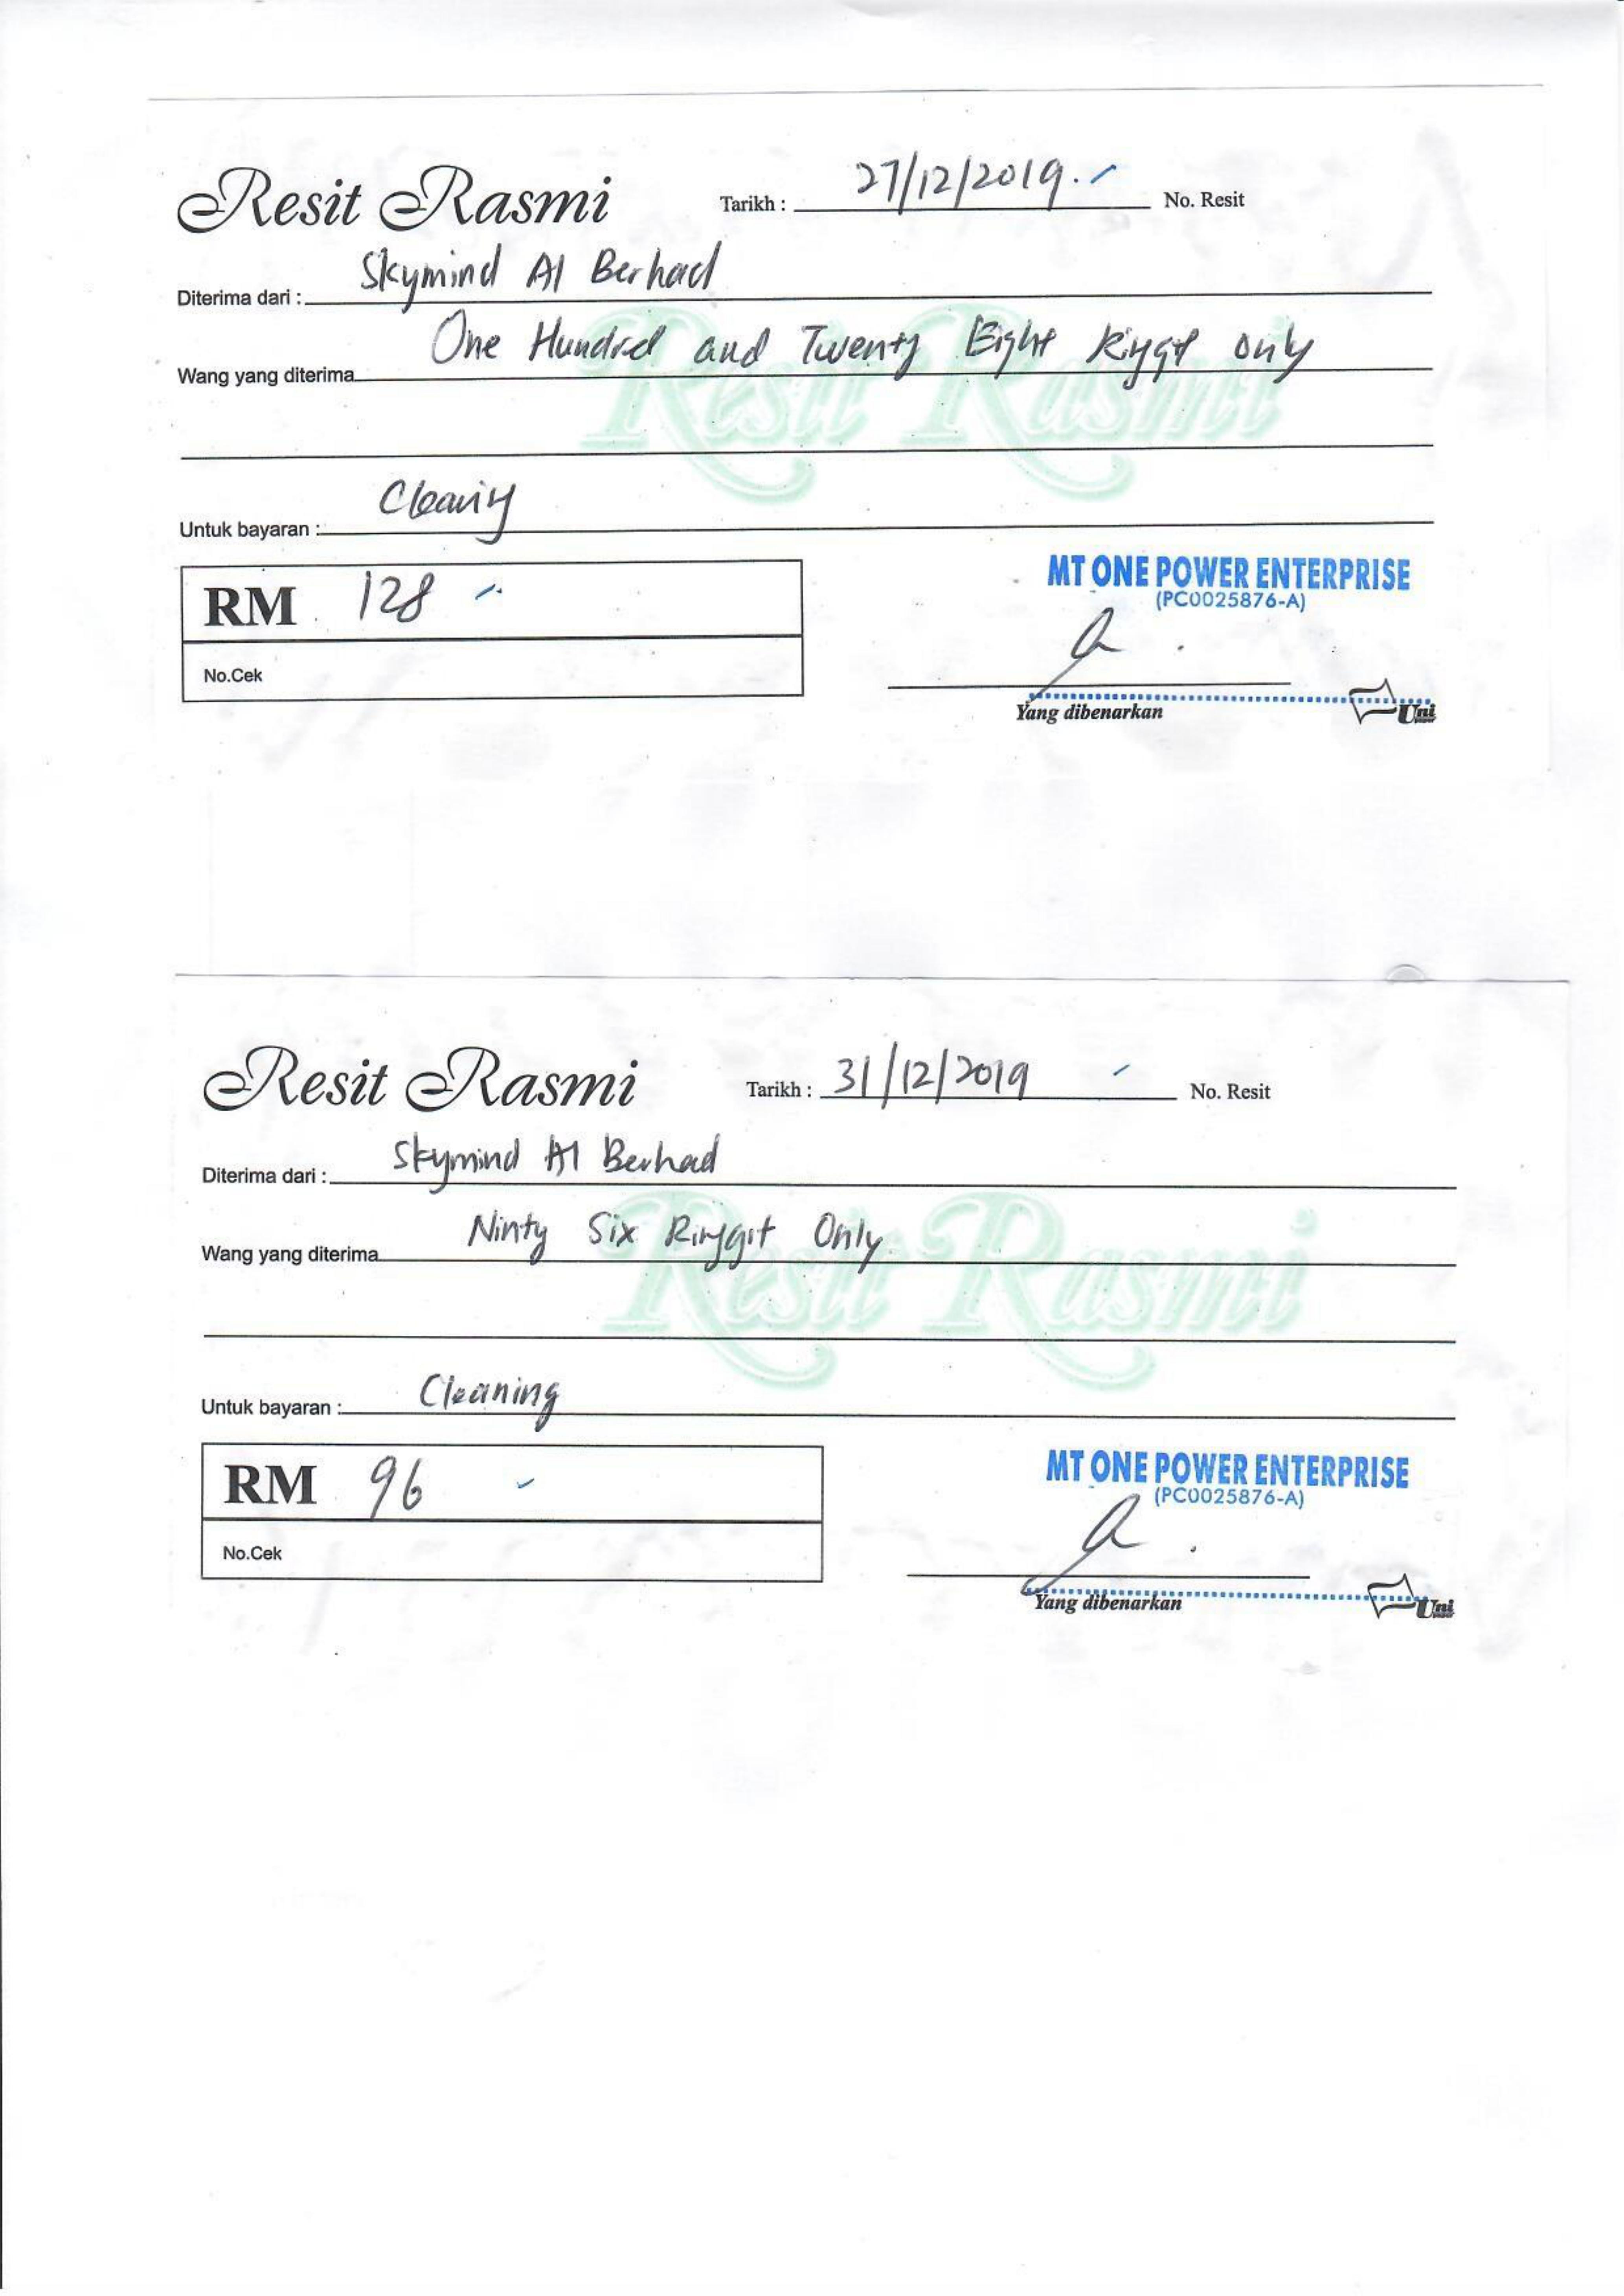 Resit Rasmi Tarikh : 27/12/2019. No. Resit
Diterima dari : Skymind AI Berhad
Wang yang diterima One Hundred and Twenty Eight Ringgit only
Resit Rasmi
Untuk bayaran : Cleaning
RM 128
MT ONE POWER ENTERPRISE
(PC0025876-A)
No.Cek
Yang dibenarkan
Uni
Resit Rasmi Tarikh : 31/12/2019 No. Resit
Diterima dari : Skymind AI Berhad
Wang yang diterima Ninty Six Ringgit Only
Resit Rasmi
Untuk bayaran : Cleaning
RM 96
MT ONE POWER ENTERPRISE
(PC0025876-A)
No.Cek
Yang dibenarkan
Uni